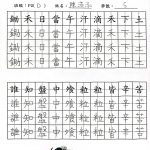 班級:(P2D) 姓名:陳 學號:5
鋤禾日當午汗滴禾下土
鋤禾日當午汗滴禾下土
鋤禾日當午汗滴禾下土
鋤禾日當午汗滴禾下土
誰知盤中飧粒粒皆辛苦
誰知盤中飧粒粒皆辛苦
誰知盤中飧粒粒皆辛苦
誰知盤中飧粒粒皆辛苦